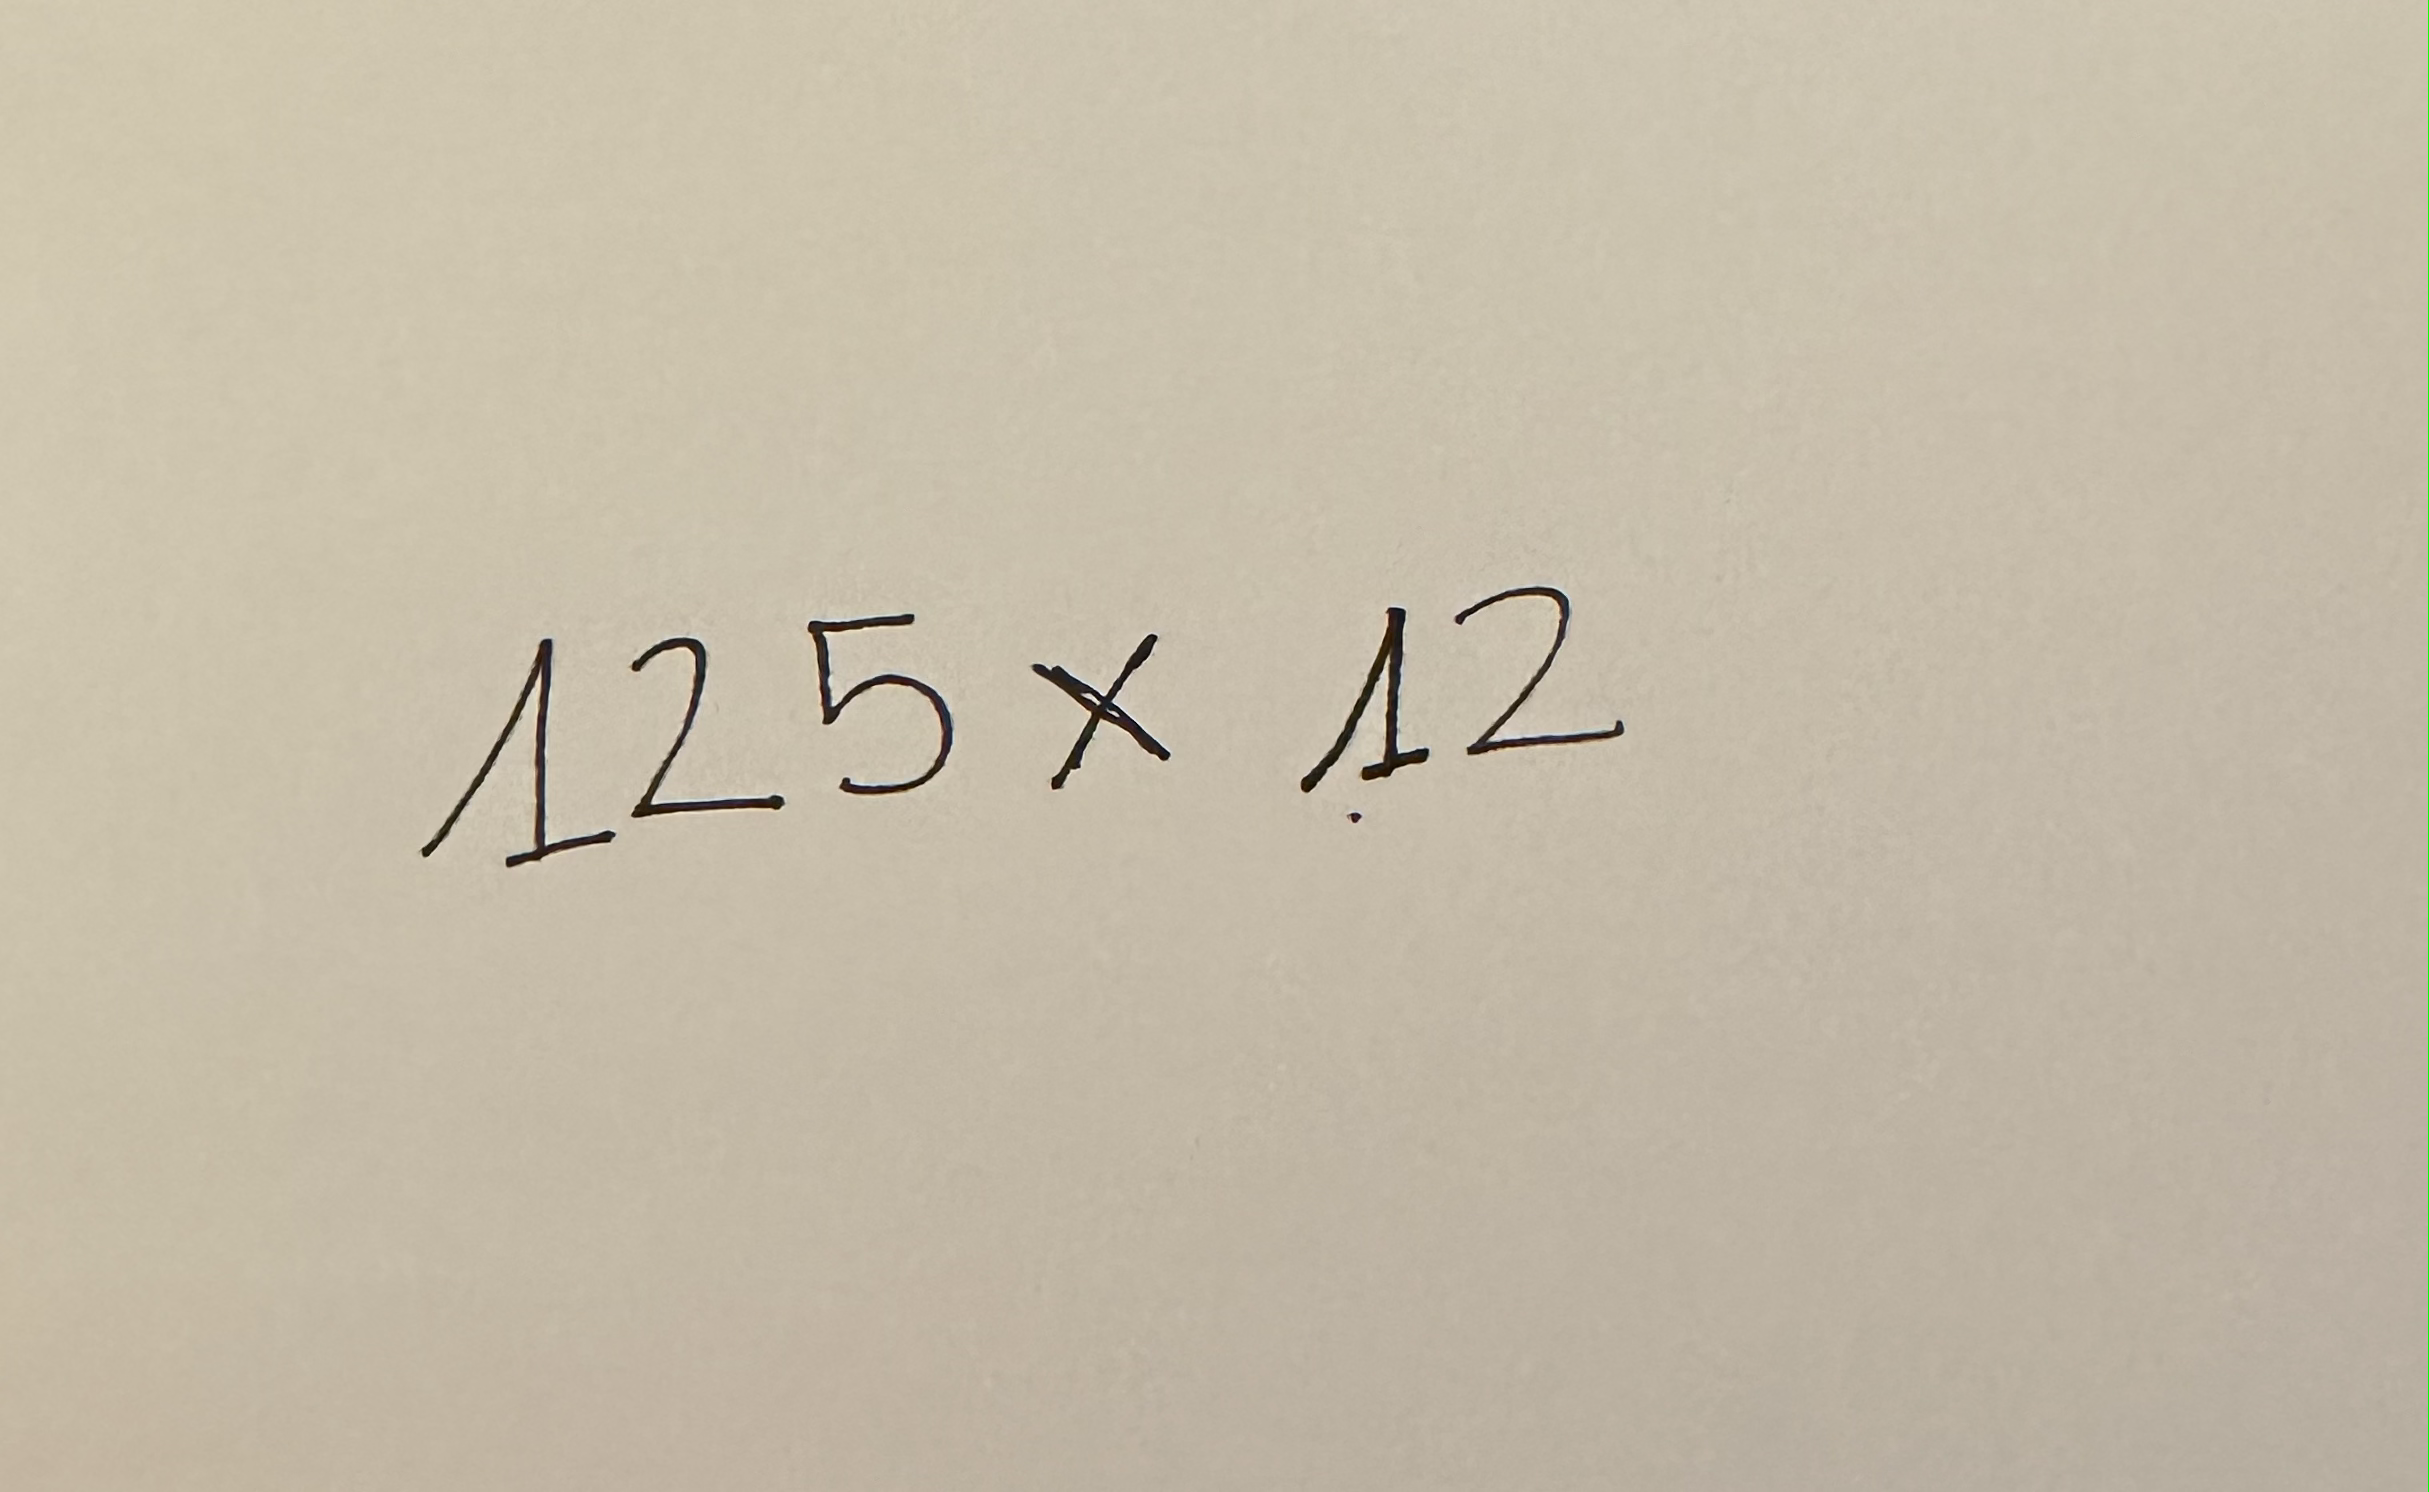 125 × 12